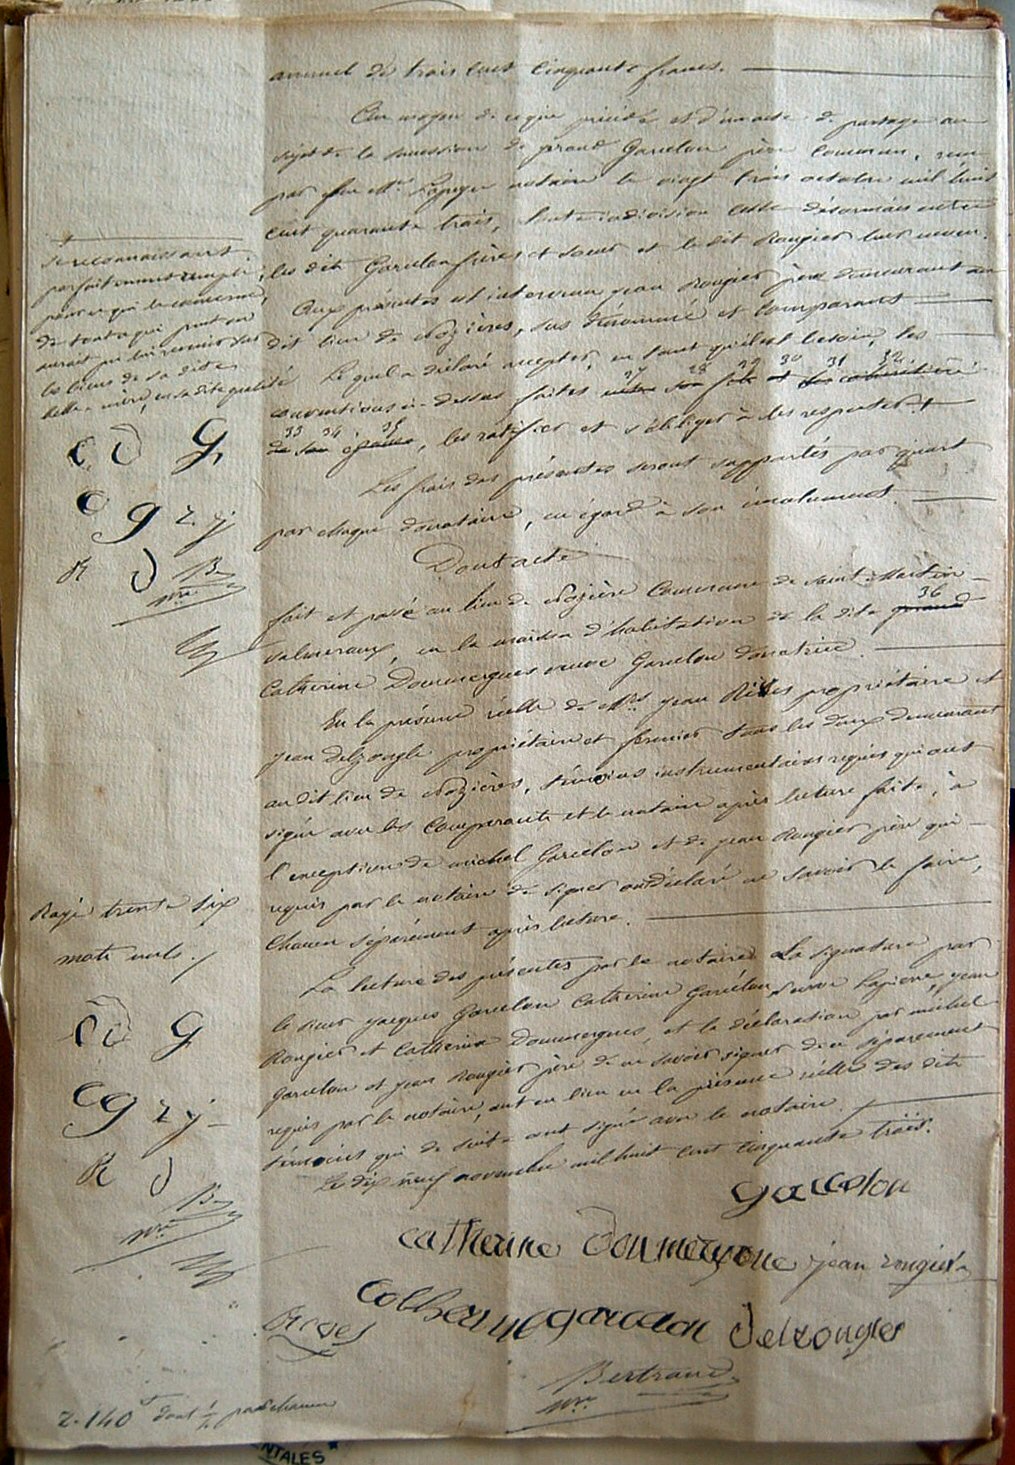 annuel de trois cent cinquante francs.
Au moyen de ce qui précède et d'un acte de partage au
sujet de la succession de Giraud Garcelon père commun, reçu
par feu Me notaire le vingt trois octobre mil huit
cent quarante trois, toute indivision cesse désormais entre
les dits Garcelon frères et sœur et le dit Rougier leur neveu.
Aux présentes est intervenu jean Rougier père demeurant au
dit lieu de Nozières, sus dénommé et comparant
Lequel a déclaré accepter, en tant qu'il est besoin, les
27 28 29 30 31 32
conventions ci-dessus faites
33 34 35
de son épouse, les ratifier et s'obliger à les respecter +
Les frais des présentes seront supportés par quart
par chaque donataire, eu égard à son émolument.
Dont acte
fait et passé au lieu de Nozière commune de Saint Martin
36
Valmeroux, en la maison d'habitation de la dite
Catherine Doumergues veuve Garcelon donatrice.
En la présence réelle de Mrs jean Rives propriétaire et
jean delzongle propriétaire et fermier tous les deux demeurant
au dit lieu de Nozières, témoins instrumentaires requis qui ont
signé avec les comparants et le notaire après lecture faite, à
l'exception de michel Garcelon et de jean Rougier père qui
requis par le notaire de signer ont déclaré ne savoir le faire,
chacun séparément après lecture.
La lecture des présentes par le notaire La signature par
le sieur jacques Garcelon Catherine Garcelon, veuve Lapierre, jean
Rougier et Catherine Doumergues, et la déclaration par michel
Garcelon et jean Rougier père de ne savoir signer de ce séparément
requis par le notaire, ont eu lieu en la présence réelle des dits
témoins qui de suite ont signé avec le notaire.
Le dix neuf novembre mil huit cent cinquante trois.
+ se reconnaissant
parfaitement rempli,
pour ce qui le concerne,
de tout ce qui peut ou
aurait pu lui revenir sur
les biens de sa dite
belle-mère, en sa dite qualité
C D G
C g r. j
R D B
nre
Rayé trente six
mots nuls.
C D G
C g r j
R D
B
nre
garcelon
catherine doumergue jean rougier
Catherine garcelon delzongles
Rives
Bertrand
nre
2.140 dont 1/2 par chacun
NTALES